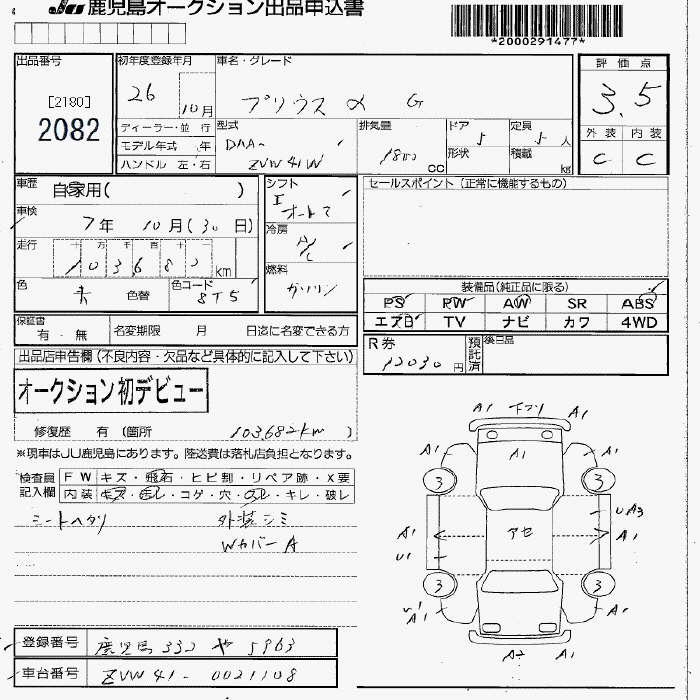 JU 鹿児島オークション出品申込書
*2000291477*
出品番号
[2180]
2082
初年度登録年月
26
10月
車名・グレード
プリウス α G
評価点
3.5
外装 内装
C C
ディーラー・並 行
モデル年式 年
ハンドル 左・右
型式
DAA-
ZVW41W
排気量
1800
CC
ドア
5
形状
定員
5人
積載
kg
車歴
自家用( )
車検
7年 10月(30日)
走行
十 万 千 百 十
103682
km
色
赤
色替
色コード
8T5
シフト
I
オートマ
冷房
A/C
燃料
ガソリン
セールスポイント(正常に機能するもの)
装備品(純正品に限る)
PS PW AW SR ABS
エアB TV ナビ カワ 4WD
保証書
有・無
名変期限 月 日迄に名変できる方
R券
12030円
預託済
後日品
出品店申告欄(不良内容・欠品など具体的に記入して下さい)
オークション初デビュー
修復歴 有 (箇所 103,682km )
※現車はJU鹿児島にあります。陸送費は落札店負担となります。
検査員記入欄
FW キズ・飛石・ヒビ割・リペア跡・X要
内装 キズ・ヨレ・コゲ・穴・スレ・キレ・破レ
シートヘタリ 外装シミ
WカバーA
A1 下フリ A1
A1 A1 A1
3 3
UA3
A1 アセ A1
U1
3 3
U1
A1 A1
A2 A1
登録番号 鹿児島 332 や 5963
車台番号 ZVW41-0021108